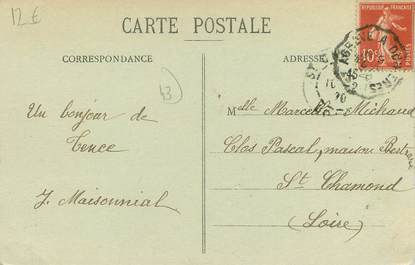 12 €
CARTE POSTALE
CORRESPONDANCE
ADRESSE
RÉPUBLIQUE FRANÇAISE
10
POSTES
43
Un bonjour de
Tence
J. Maisonnial
Melle Marcelle Michaud
Clos Pascal, maison
St Chamond
(Loire)